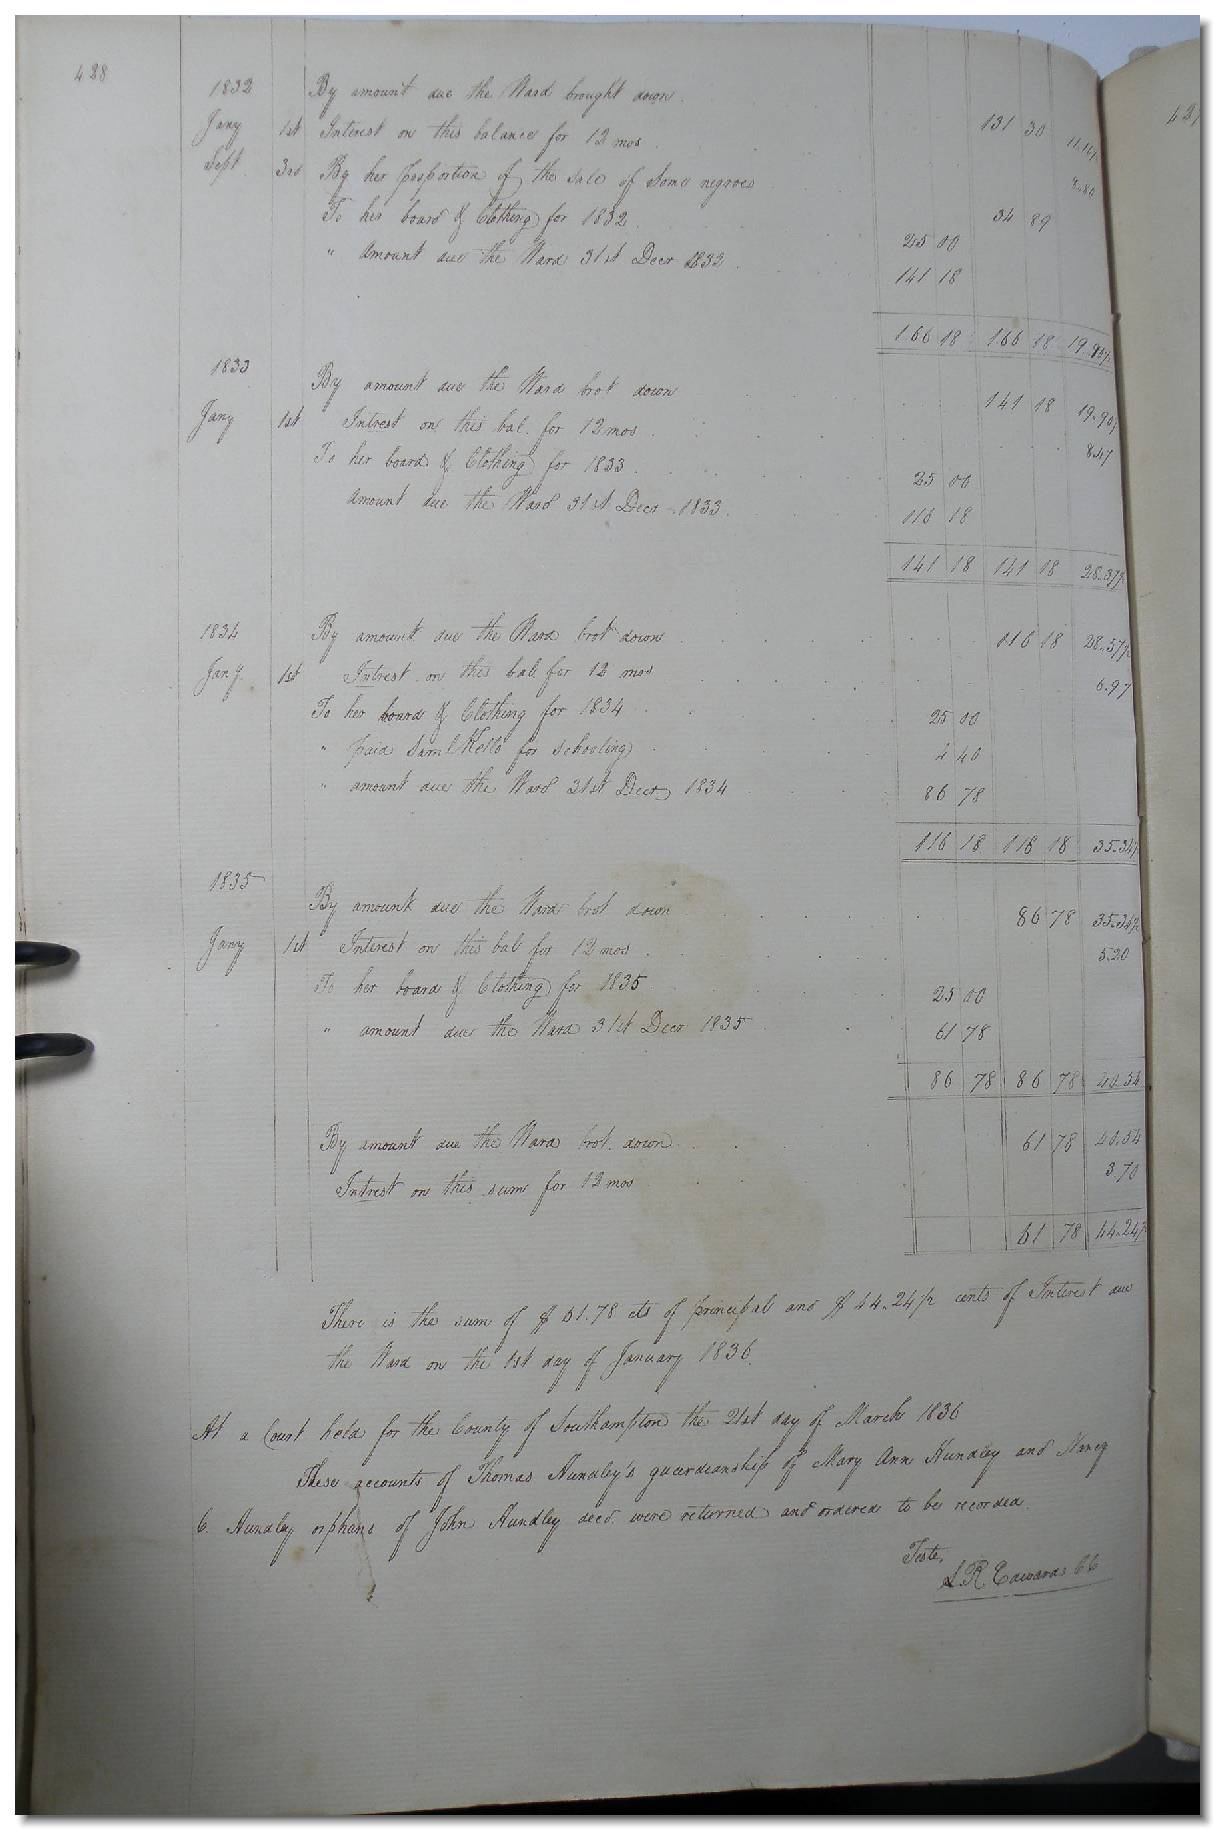 428
1832 By amount due the Ward brought down 131 30
Jany 1st Interest on this balance for 12 mos
Sept 3rd By her proportion of the sale of some negroes 34 89
To her board & Clothing for 1832 25 00
" Amount due the Ward 31st Decr 1832 141 18
166 18 166 18
1833 By amount due the Ward brot down 141 18
Jany 1st Intrest on this bal. for 12 mos 8.47
To her board & Clothing for 1833 25 00
Amount due the Ward 31st Decr 1833 116 18
141 18 141 18 28.37½
1834 By amount due the Ward brot down 116 18 28.37½
Jany. 1st Intrest on this bal. for 12 mos 6.97
To her board & Clothing for 1834 25 00
" paid Saml Kello for schooling 4 40
" amount due the Ward 31st Decr 1834 86 78
116 18 116 18 35.34½
1835 By amount due the Ward brot down 86 78 35.34½
Jany 1st Interest on this bal for 12 mos 5.20
To her board & Clothing for 1835 25 00
" amount due the Ward 31st Decr 1835 61 78
86 78 86 78 40.54
By amount due the Ward brot. down 61 78 40.54
Intrest on this sum for 12 mos 3.70
61 78 44.24½
There is the sum of $ 61.78 cts of principal and $ 44.24½ cents of Interest due
the Ward on the 1st day of January 1836.
At a Court held for the County of Southampton the 21st day of March 1836
These accounts of Thomas Hundley's guardianship of Mary Ann Hundley and Nancy
C. Hundley orphans of John Hundley decd. were returned and ordered to be recorded.
Teste,
L. R. Edwards CC